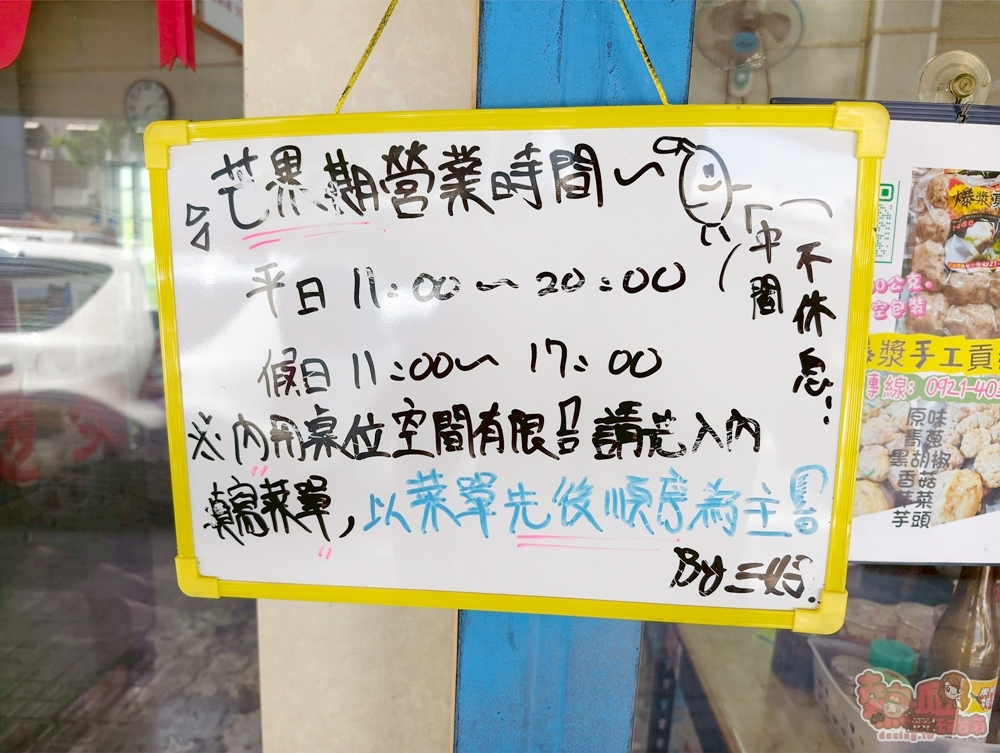 芒果期營業時間~
平日 11:00 ~ 20:00
(中間不休息)
假日 11:00 ~ 17:00
※內用桌位空間有限!請先入內
填寫菜單,以菜單先後順序為主!
By 二姑.
爆漿
0公克.
空包裝
漿手工貢
專線: 0921-403
原味
青蔥
黑胡椒
香菇
芋頭
decing.tw